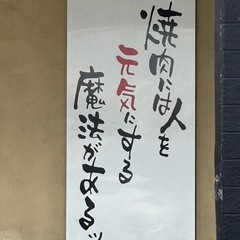 焼肉には人を
元気にする
魔法があるッ